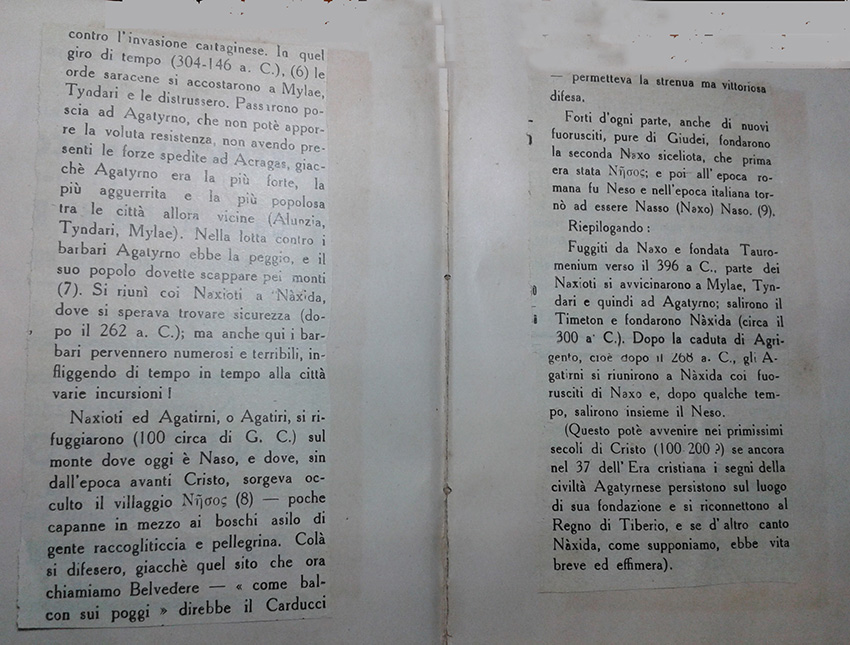 contro l'invasione cartaginese. In quel
giro di tempo (304-146 a. C.), (6) le
orde saracene si accostarono a Mylae,
Tyndari e le distrussero. Passarono po-
scia ad Agatyrno, che non potè appor-
re la voluta resistenza, non avendo pre-
senti le forze spedite ad Acragas, giac-
chè Agatyrno era la più forte, la
più agguerrita e la più popolosa
tra le città allora vicine (Alunzia,
Tyndari, Mylae). Nella lotta contro i
barbari Agatyrno ebbe la peggio, e il
suo popolo dovette scappare pei monti
(7). Si riunì coi Naxioti a Nàxida,
dove si sperava trovare sicurezza (do-
po il 262 a. C.); ma anche qui i bar-
bari pervennero numerosi e terribili, in-
fliggendo di tempo in tempo alla città
varie incursioni !
Naxioti ed Agatirni, o Agatiri, si ri-
fuggiarono (100 circa di G. C.) sul
monte dove oggi è Naso, e dove, sin
dall'epoca avanti Cristo, sorgeva oc-
culto il villaggio Νῆσος (8) — poche
capanne in mezzo ai boschi asilo di
gente raccogliticcia e pellegrina. Colà
si difesero, giacchè quel sito che ora
chiamiamo Belvedere — « come bal-
con sui poggi » direbbe il Carducci
— permetteva la strenua ma vittoriosa
difesa.
Forti d'ogni parte, anche di nuovi
fuorusciti, pure di Giudei, fondarono
la seconda Naxo siceliota, che prima
era stata Νῆσος; e poi all'epoca ro-
mana fu Neso e nell'epoca italiana tor-
nò ad essere Nasso (Naxo) Naso. (9).
Riepilogando :
Fuggiti da Naxo e fondata Tauro-
menium verso il 396 a C., parte dei
Naxioti si avvicinarono a Mylae, Tyn-
dari e quindi ad Agatyrno; salirono il
Timeton e fondarono Nàxida (circa il
300 a. C.). Dopo la caduta di Agri-
gento, cioè dopo il 268 a. C., gli A-
gatirni si riunirono a Nàxida coi fuo-
rusciti di Naxo e, dopo qualche tem-
po, salirono insieme il Neso.
(Questo potè avvenire nei primissimi
secoli di Cristo (100 200 ?) se ancora
nel 37 dell'Era cristiana i segni della
civiltà Agatyrnese persistono sul luogo
di sua fondazione e si riconnettono al
Regno di Tiberio, e se d'altro canto
Nàxida, come supponiamo, ebbe vita
breve ed effimera).